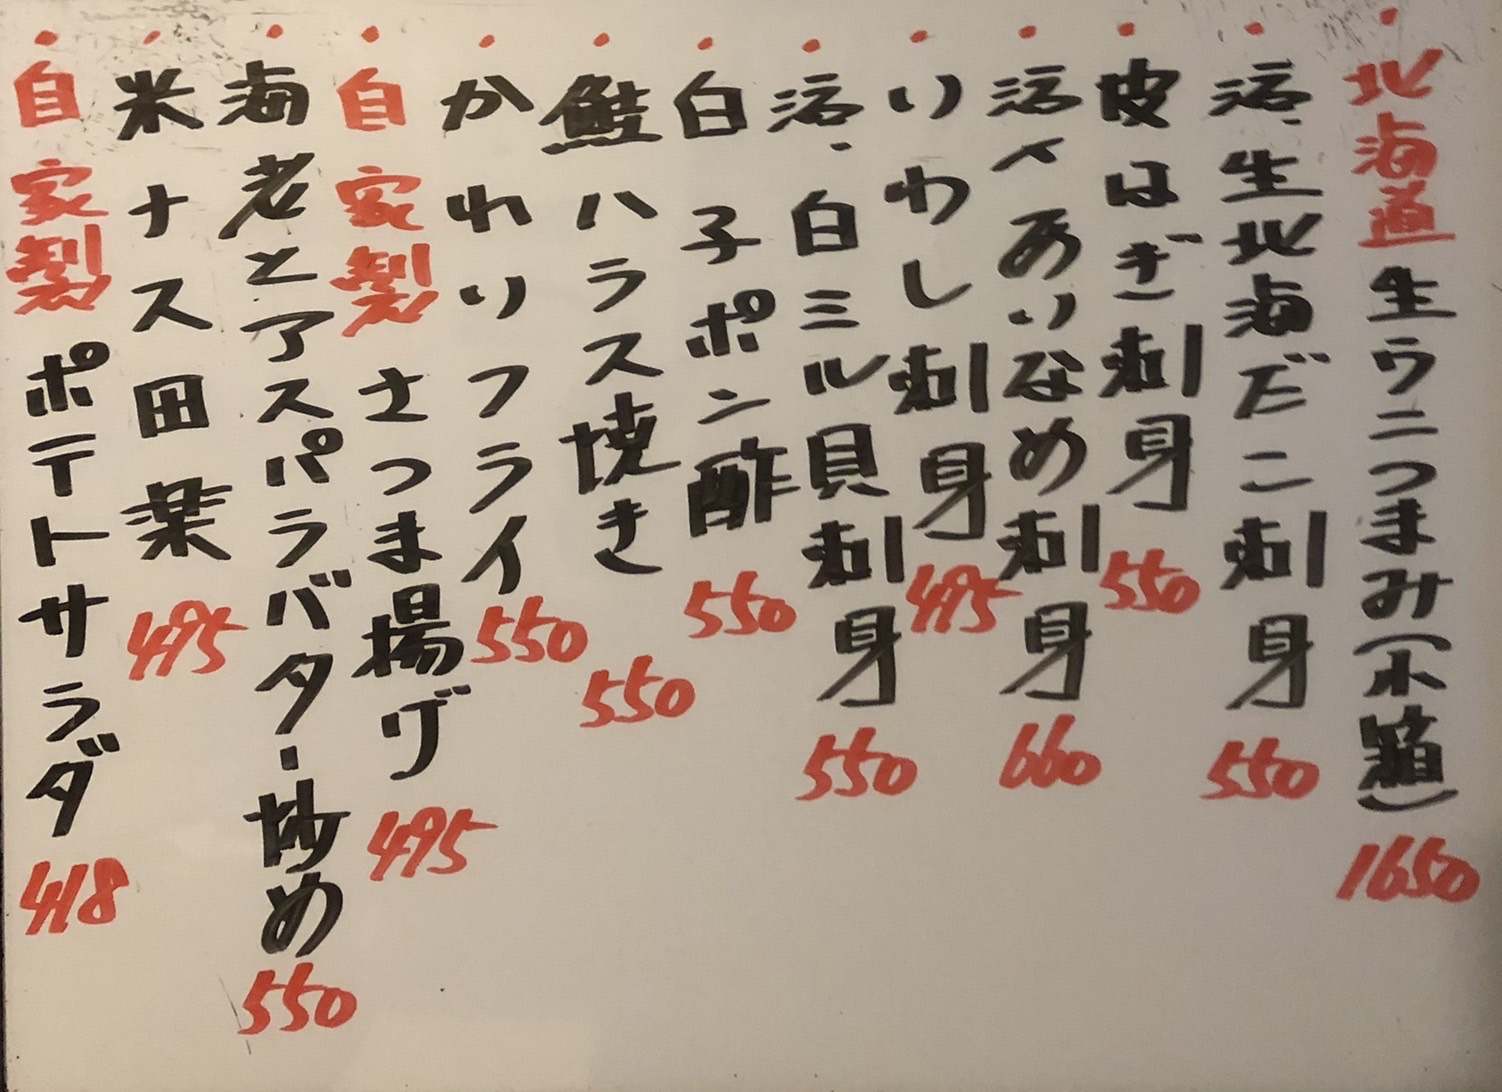 ・北海道生ウニつまみ(木箱)1650
・活生北海だこ刺身550
・皮はぎ刺身550
・活〆あいなめ刺身660
・いわし刺身495
・活白ミル貝刺身550
・白子ポン酢550
・鮭ハラス焼き550
・かれいフライ550
・自家製さつま揚げ495
・海老とアスパラバター炒め550
・米ナス田楽495
・自家製ポテトサラダ418